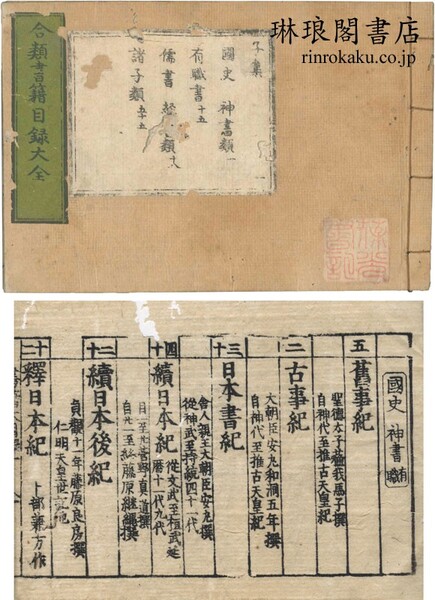 琳琅閣書店
rinrokaku.co.jp
合類書籍目録大全
子集
國史 神書類 一
有職書 十五
儒書 類 十八
諸子類 五十五
國史 神書 有職
五
舊事紀
聖德太子蘇我馬子撰
自神代至推古天皇紀
三
古事紀
大朝臣安丸和洞五年撰
自神代至推古天皇紀
三十
日本書紀
舎人親王大朝臣安丸撰
從神武至持統四十一代
四十
續日本紀
從文武至桓武延
暦十代九年
藤原繼繩撰
二十
續日本後紀
貞觀十一年藤原良房撰
仁明天皇
二十
釋日本紀
卜部兼方作